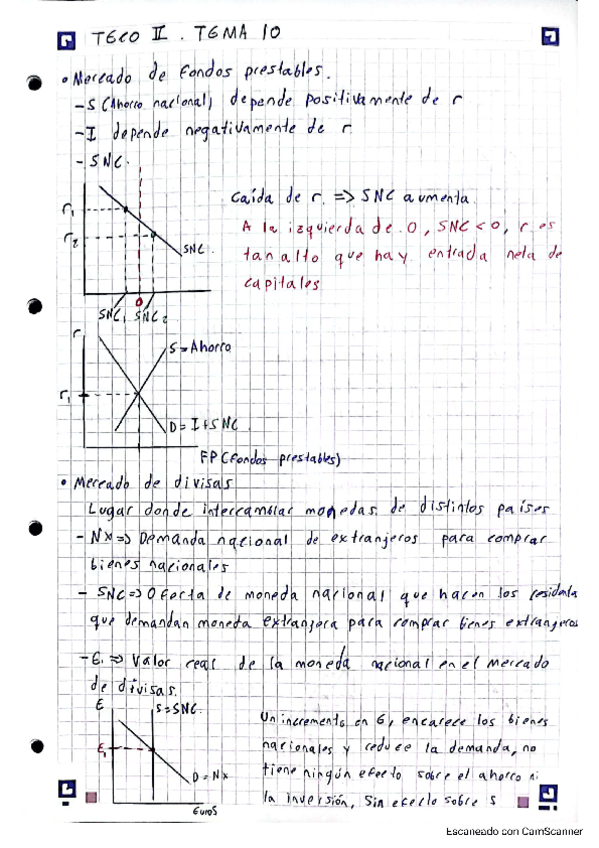 TECO II . TEMA 10
• Mercado de Fondos prestables.
- S (Ahorro nacional) depende positivamente de r
- I depende negativamente de r
- SNC.
Caída de r. => SNC aumenta.
A la izquierda de 0, SNC < 0, r es
tan alto que hay entrada neta de
capitales
r1
r2
SNC
0
SNC1 SNC2
r
S = Ahorro
r1
D = I + SNC
FP (Fondos prestables)
• Mercado de divisas
Lugar donde intercambiar monedas de distintos países
- Nx => Demanda nacional de extranjeros para comprar
bienes nacionales
- SNC => Oferta de moneda nacional que hacen los residentes
que demandan moneda extranjera para comprar bienes extranjeros
- E. => Valor real de la moneda nacional en el mercado
de divisas.
E
S = SNC
E1
D = Nx
Euros
Un incremento en E, encarece los bienes
nacionales y reduce la demanda, no
tiene ningún efecto sobre el ahorro ni
la inversión, Sin efecto sobre S
Escaneado con CamScanner